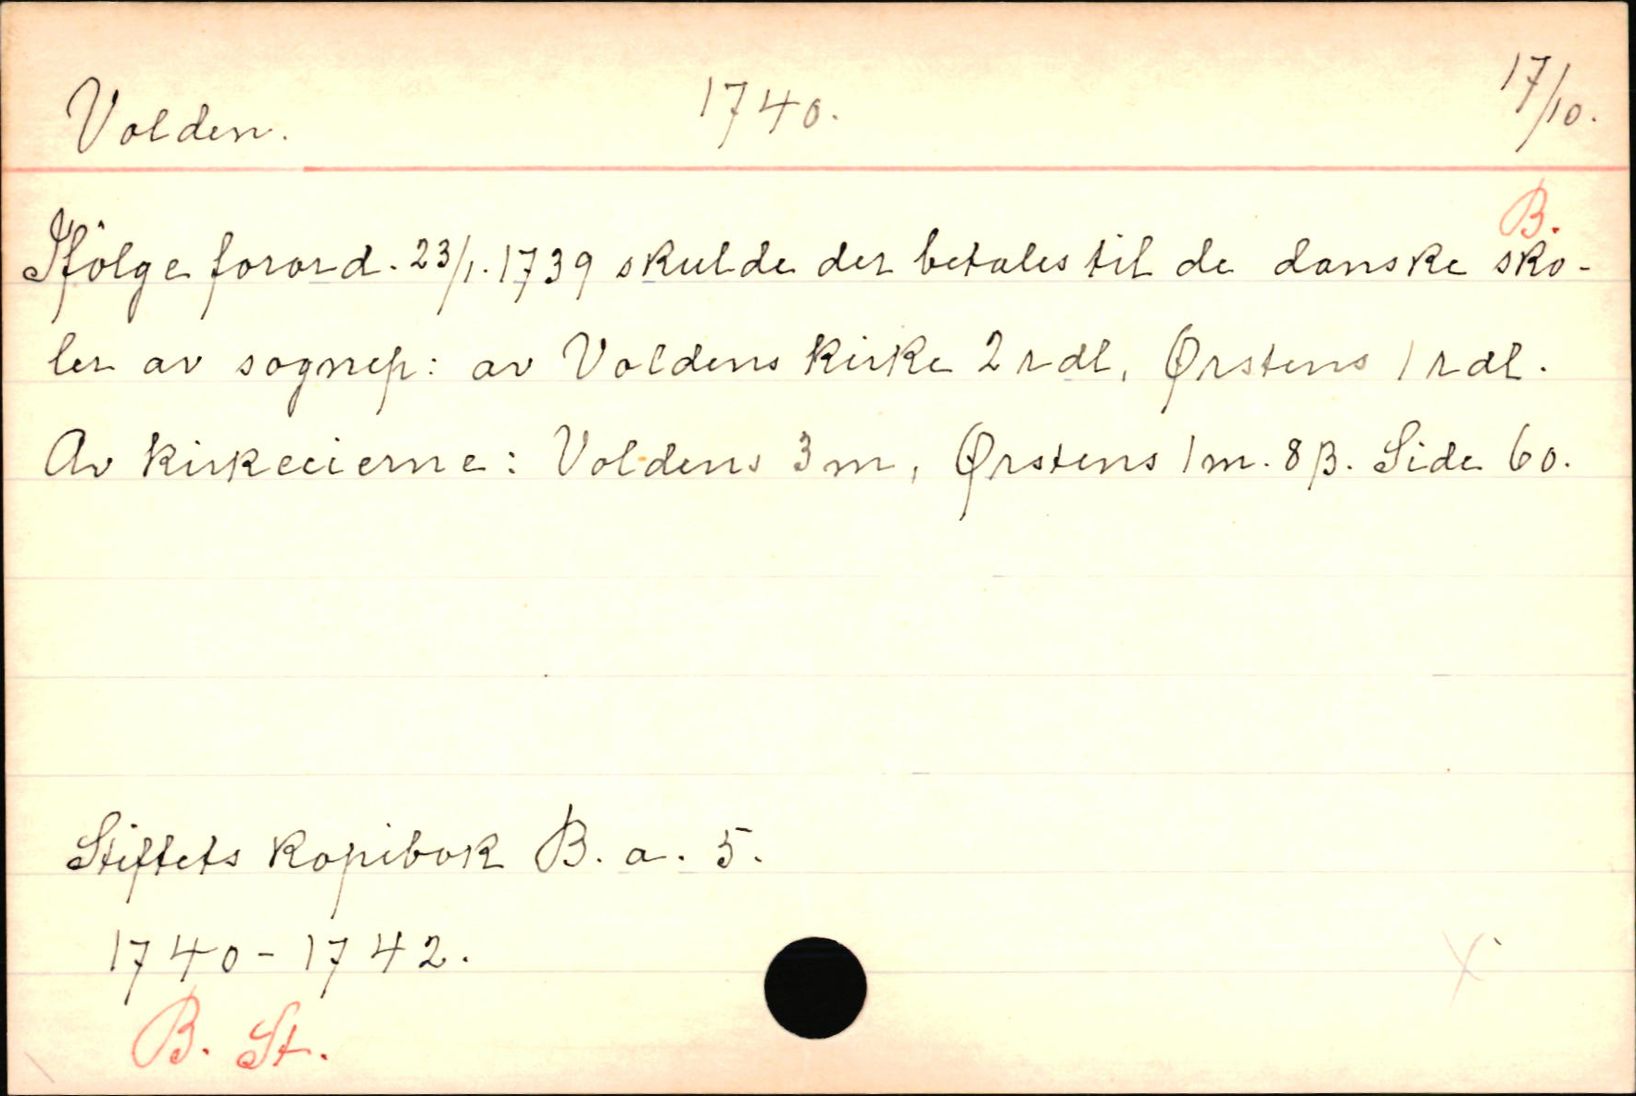 Volden. 1740. 17/10.
B.
Ifølge forord. 23/1. 1739 skulde der betales til de danske sko-
ler av sognep: av Voldens kirke 2 rdl, Ørstens 1 rdl.
Av kirkeeierne: Voldens 3 m, Ørstens 1 m. 8 β. Side 60.
Stiftets kopibok B. a. 5.
1740-1742.
X
B. St.